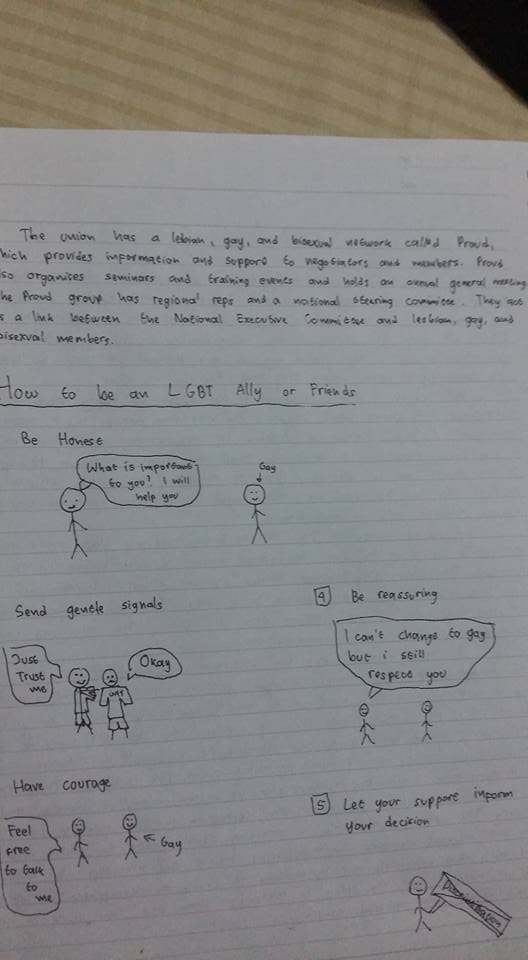 The union has a lebian, gay, and bisexual network called Proud,
hich provides information and support to negotiators and members. Proud
so organises seminars and training events and holds an annual general meeting
he Proud group has regional reps and a national steering committee. They act
s a link between the National Executive Committee and lesbian, gay, and
bisexual members.
How to be an LGBT Ally or Friends
Be Honest
What is important
to you? I will
help you
Gay
Send gentle signals
Just
Trust
me
Okay
4 Be reassuring
I can't change to gay
but i still
respect you
Have courage
Feel
free
to talk
to me
Gay
5 Let your support inform
your decision